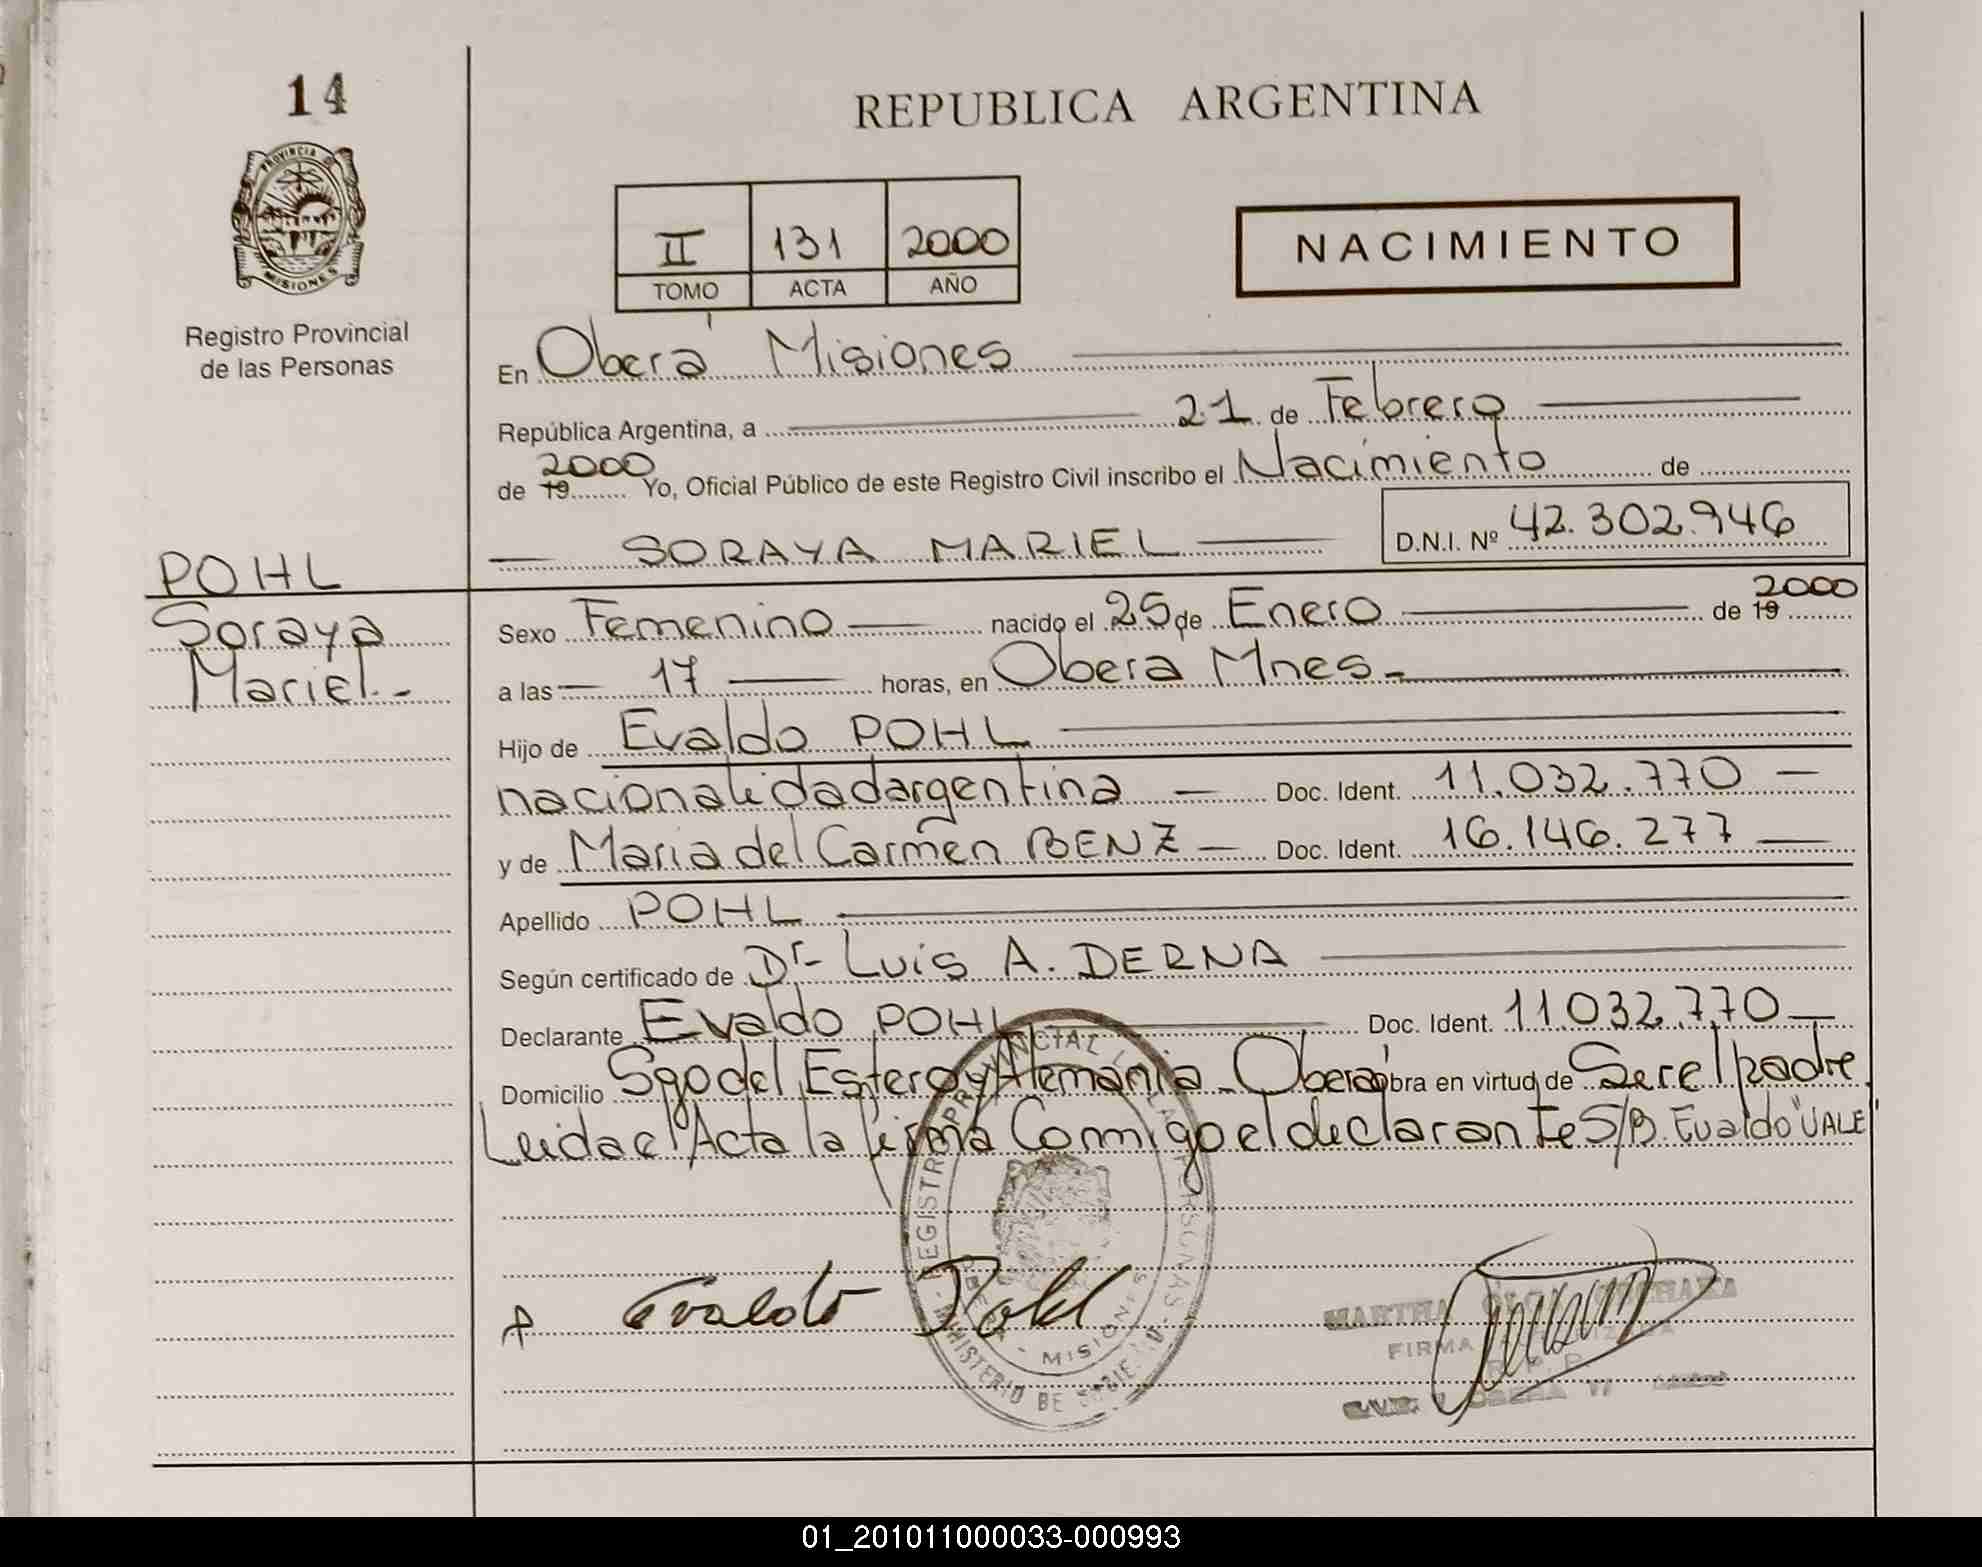 14
PROVINCIA DE
MISIONES
Registro Provincial
de las Personas
REPUBLICA ARGENTINA
II 131 2000
TOMO ACTA AÑO
NACIMIENTO
En Oberá Misiones
República Argentina, a 21 de Febrero
2000
de 19 Yo, Oficial Público de este Registro Civil inscribo el Nacimiento de
SORAYA MARIEL D.N.I. Nº 42.302.946
POHL
Soraya
Mariel.-
2000
Sexo Femenino nacido el 25 de Enero de 19
a las 17 horas, en Oberá Mnes-
Hijo de Evaldo POHL
nacionalidad argentina Doc. Ident. 11.032.770
y de Maria del Carmen BENZ Doc. Ident. 16.146.277
Apellido POHL
Según certificado de Dr Luis A. DERNA
Declarante Evaldo POHL Doc. Ident. 11.032.770
Domicilio Sgo del Estero y Alemania - Oberá obra en virtud de Ser el padre
Leida el Acta la firma Conmigo el declarante S/B. Evaldo "VALE"
REGISTRO PROVINCIAL DE LAS PERSONAS
MISIONES
MINISTERIO DE
Evaldo Pohl
MARTHA
FIRMA
01_201011000033-000993